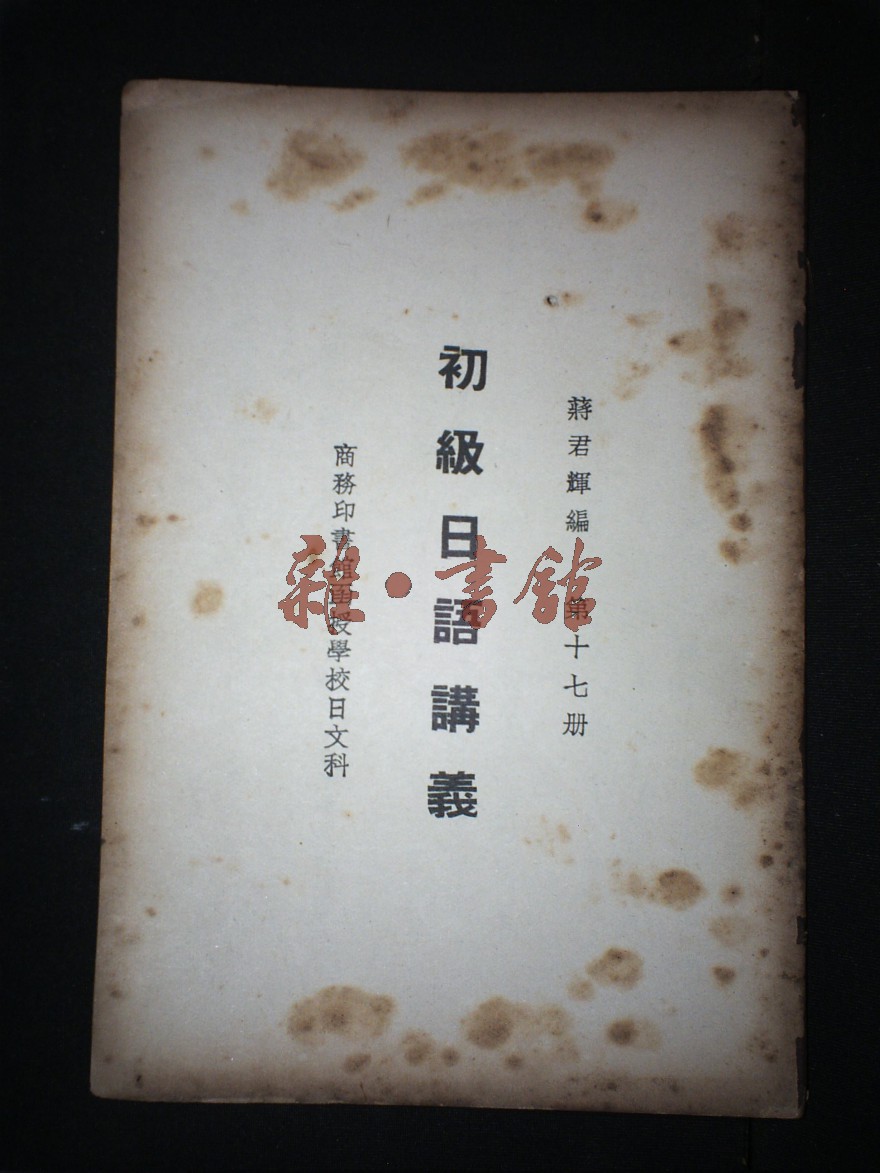 蔣君輝編 第十七册
初級日語講義
商務印書館函授學校日文科
雜·書館